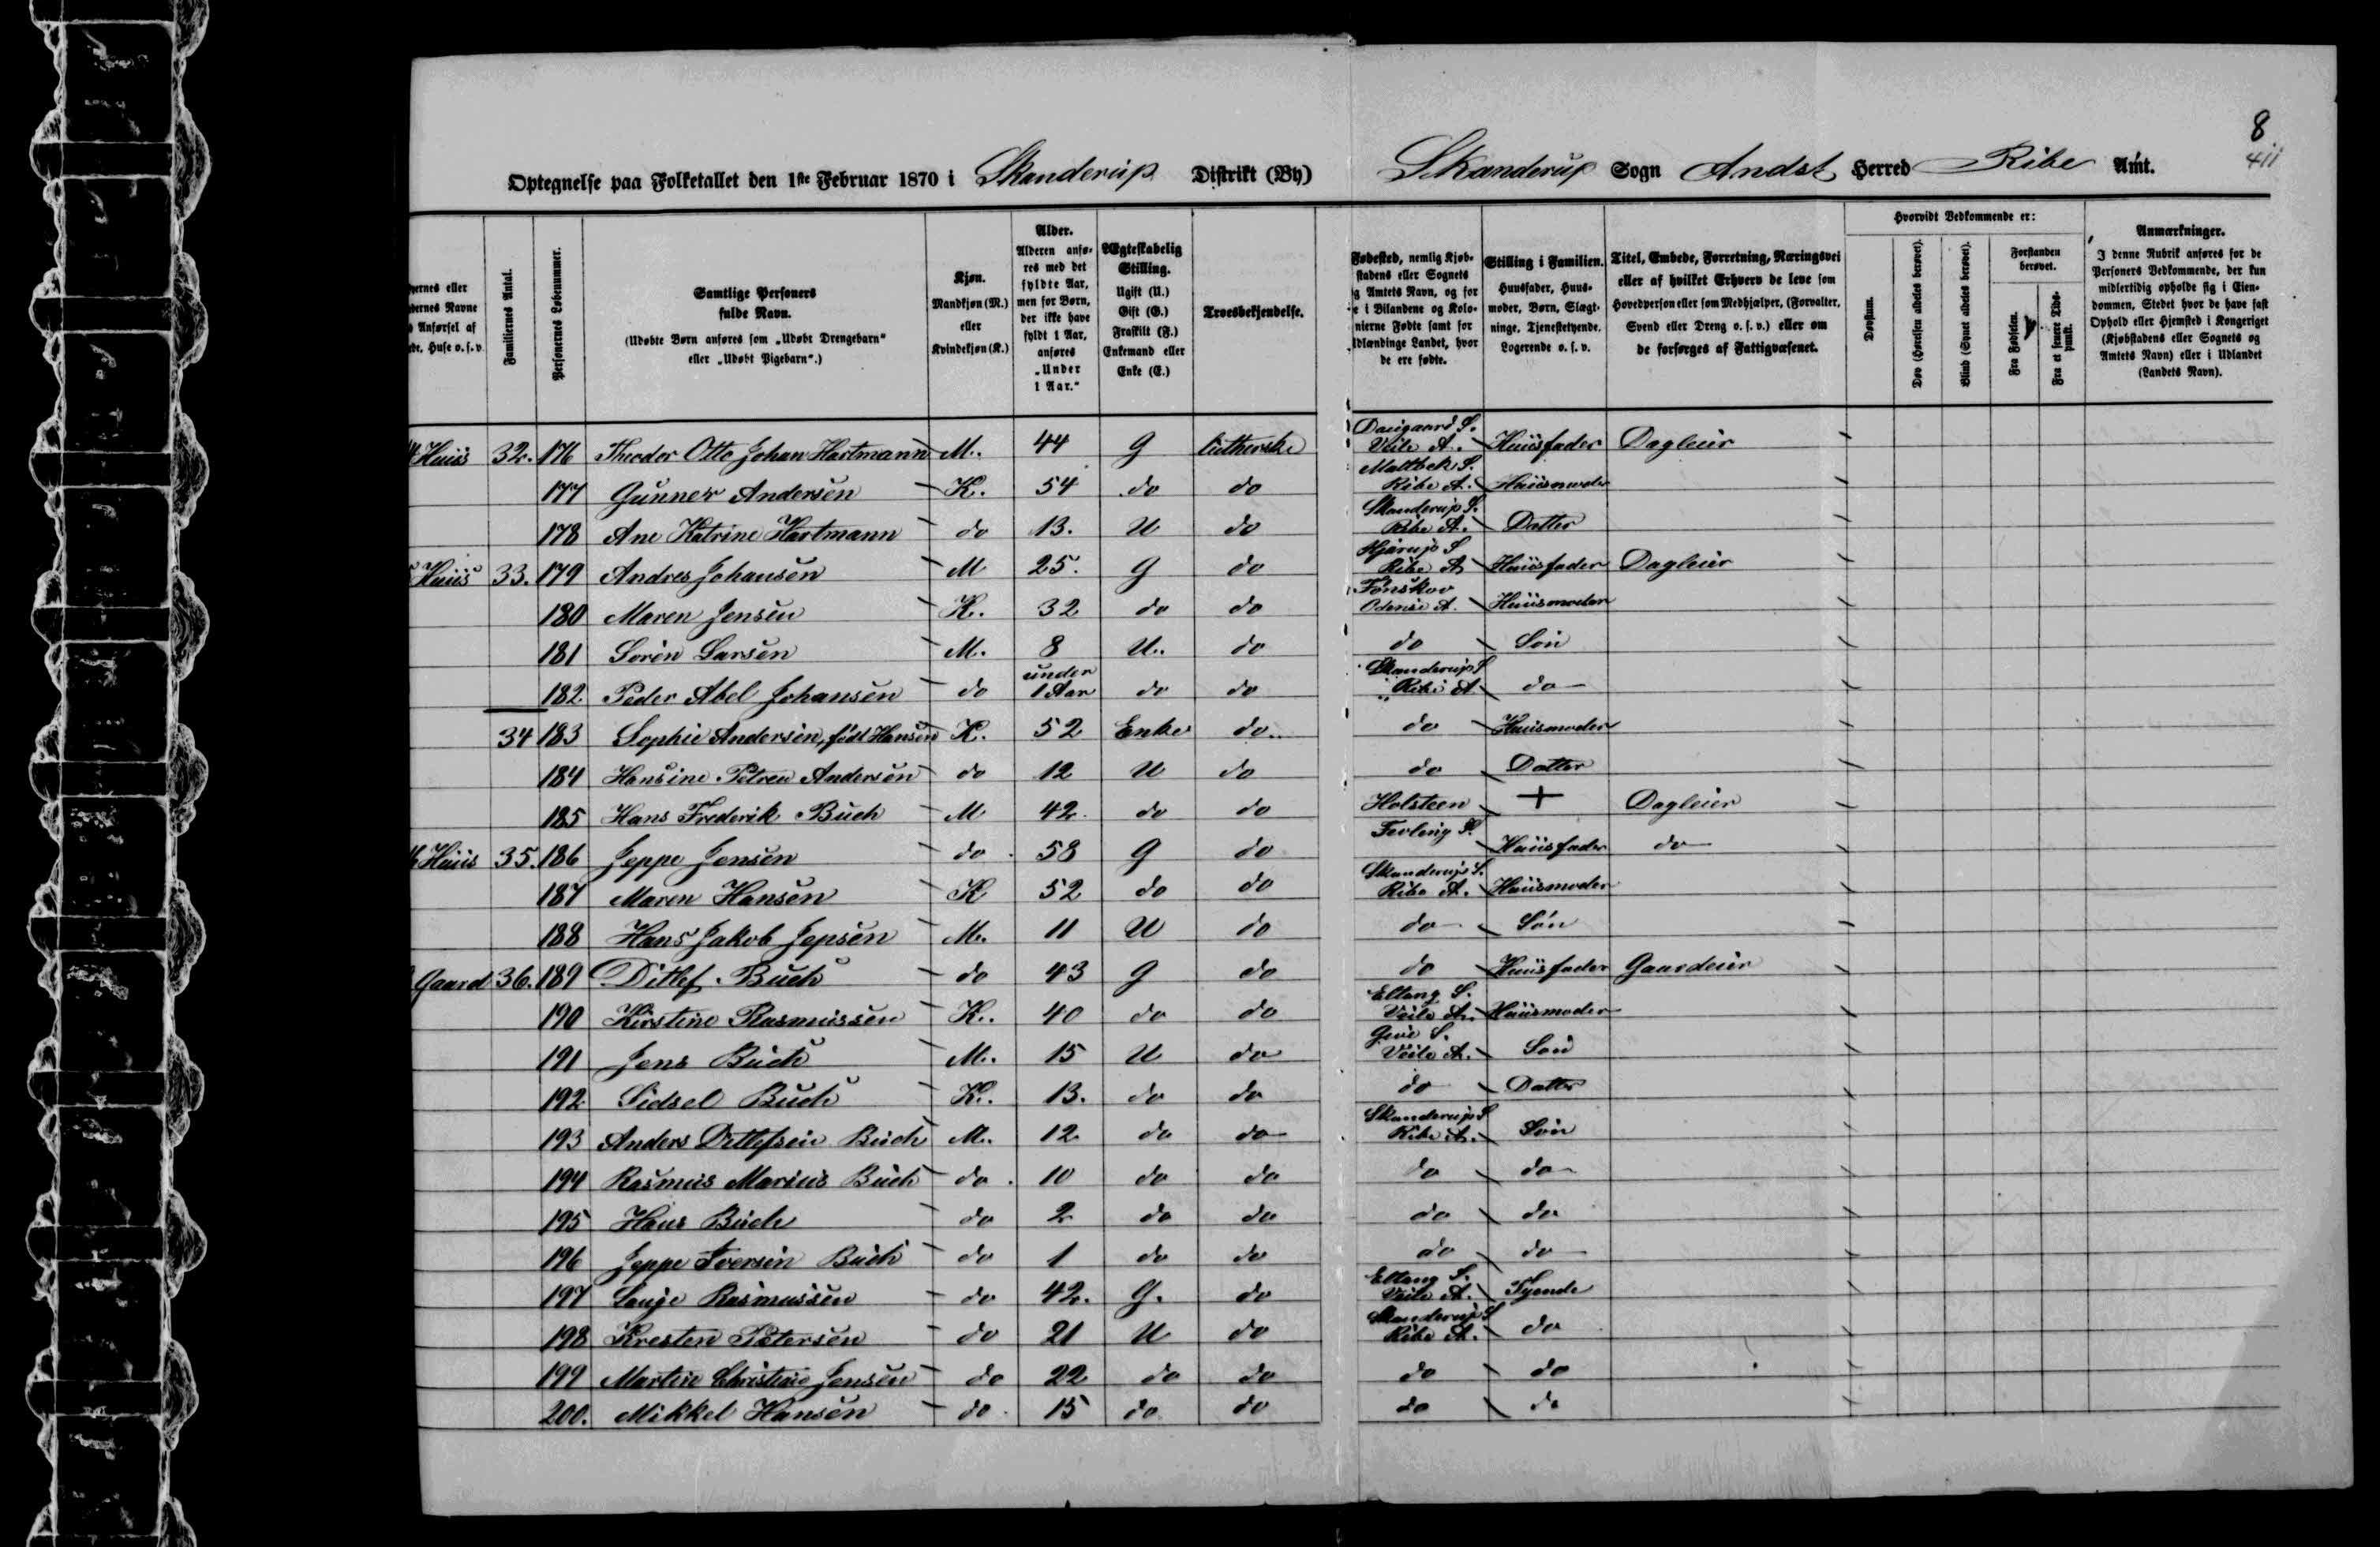 8
411
Optegnelse paa Folketallet den 1ste Februar 1870 i Skanderup Distrikt (By) Skanderup Sogn Andst Herred Ribe Amt.
Familiernes Antal.
Personernes Løbenummer.
Samtlige Personers
fulde Navn.
(Udøbte Børn anføres som „Udøbt Drengebarn"
eller „Udøbt Pigebarn".)
Kjøn.
Mandkjøn (M.)
eller
Kvindekjøn (K.)
Alder.
Alderen anfø-
res med det
fyldte Aar,
men for Børn,
der ikke have
fyldt 1 Aar,
anføres
„Under
1 Aar."
Ægteskabelig
Stilling.
Ugift (U.)
Gift (G.)
Fraskilt (F.)
Enkemand eller
Enke (E.)
Troesbekjendelse.
Fødested, nemlig Kjøb-
stadens eller Sognets
og Amtets Navn, og for
de i Bilandene og Kolo-
nierne Fødte samt for
Udlændinge Landet, hvor
de ere fødte.
Stilling i Familien.
Huusfader, Huus-
moder, Børn, Slægt-
ninge, Tjenestetyende,
Logerende o. s. v.
Titel, Embede, Forretning, Næringsvei
eller af hvilket Erhverv de leve som
Hovedperson eller som Medhjælper, (Forvalter,
Svend eller Dreng o. s. v.) eller om
de forsørges af Fattigvæsenet.
Hvorvidt Vedkommende er:
Døvstum.
Døv (Hørelsen aldeles berøvet).
Blind (Synet aldeles berøvet).
Forstanden
berøvet.
Fra Fødselen.
Fra et senere Tids-
punkt.
Anmærkninger.
I denne Rubrik anføres for de
Personers Vedkommende, der kun
midlertidig opholde sig i Eien-
dommen, Stedet hvor de have fast
Ophold eller Hjemsted i Kongeriget
(Kjøbstadens eller Sognets og
Amtets Navn) eller i Udlandet
(Landets Navn).
Huus 32. 176 Theodor Otto Johan Hartmann M. 44 G lutherske Daugaard S. Veile A. Huusfader Dagleier
177 Gunner Andersen K. 54 do do Maltbek S. Ribe A. Huusmoder
178 Ane Katrine Hartmann do 13. U do Skanderup S. Ribe A. Datter
Huus 33. 179 Andres Johansen M 25. G do Hjarup S Ribe A Huusfader Dagleier
180 Maren Jensen K. 32 do do Fønskov Odense A. Huusmoder
181 Søren Larsen M. 8 U. do do Søn
182 Peder Abel Johansen do under 1 Aar do do Skanderup S Ribe A do
34 183 Sophie Andersen, født Hansen K. 52 Enke do do Huusmoder
184 Hansine Petrea Andersen do 12 U do do Datter
185 Hans Frederik Buch M 42 do do Holsteen + Dagleier
Huus 35. 186 Jeppe Jensen do 58 G do Ferling S. Huusfader do
187 Maren Hansen K 52 do do Skanderup S. Ribe A. Huusmoder
188 Hans Jakob Jepsen M. 11 U do do Søn
Gaard 36. 189 Ditlef Buch do 43 G do do Huusfader Gaardeier
190 Kirstine Rasmussen K. 40 do do Eltang S. Veile A. Huusmoder
191 Jens Buch M. 15 U do Give S. Veile A. Søn
192 Sidsel Buch K. 13. do do do Datter
193 Anders Ditlefsen Buch M. 12 do do Skanderup S Ribe A. Søn
194 Rasmus Marius Buch do 10 do do do do
195 Hans Buch do 2 do do do do
196 Jeppe Iversen Buch do 1 do do do do
197 Lauge Rasmussen do 42. G. do Eltang S. Veile A. Tyende
198 Kresten Petersen do 21 U do Skanderup S Ribe A. do
199 Martin Christian Jensen do 22 do do do do
200. Mikkel Hansen do 15 do do do do